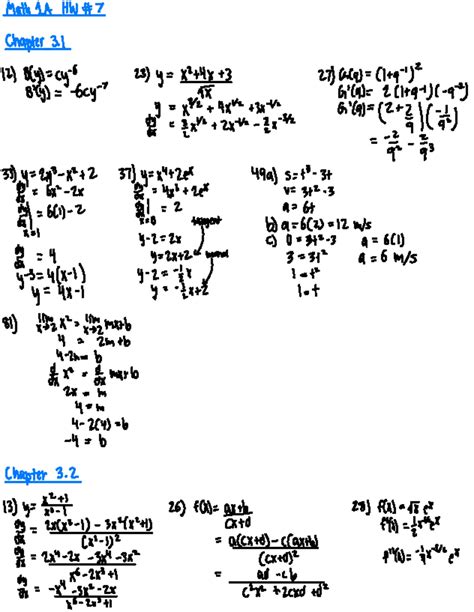 Math 1A HW #7
Chapter 3.1
12) B(y) = cy⁻⁶
B'(y) = -6cy⁻⁷
23) y = (x²+4x+3)/√x
y = x^(3/2) + 4x^(1/2) + 3x^(-1/2)
dy/dx = 3/2 x^(1/2) + 2x^(-1/2) - 3/2 x^(-3/2)
27) G(q) = (1+q⁻¹)²
G'(q) = 2(1+q⁻¹)(-q⁻²)
G'(q) = (2 + 2/q)(-1/q²)
= -2/q² - 2/q³
y = 2x³-x²+2
dy/dx = 6x²-2x
dy/dx | x=1 = 6(1)-2
dy/dx = 4
y-3 = 4(x-1)
y = 4x-1
37) y = x⁴+2eˣ
dy/dx = 4x³+2eˣ
dy/dx | x=0 = 2
tangent
y-2 = 2x
y = 2x+2
normal
y-2 = -1/2 x
y = -1/2 x+2
49a) s = t³-3t
v = 3t²-3
a = 6t
b) a = 6(2) = 12 m/s
c) 0 = 3t²-3 a = 6(1)
3 = 3t² a = 6 m/s
1 = t²
1 = t
81) lim x→2 x² = lim x→2 mx+b
4 = 2m+b
4-2m = b
d/dx x² = d/dx mx+b
2x = m
4 = m
4-2(4) = b
-4 = b
Chapter 3.2
13) y = (x²+1)/(x³-1)
dy/dx = (2x(x³-1) - 3x²(x²+1))/(x³-1)²
dy/dx = (2x⁴-2x - 3x⁴-3x²)/(x⁶-2x³+1)
dy/dx = (-x⁴-3x²-2x)/(x⁶-2x³+1)
26) f(x) = (ax+b)/(cx+d)
= (a(cx+d) - c(ax+b))/(cx+d)²
= (ad - cb)/(c²x² + 2cxd + d²)
28) f(x) = √x eˣ